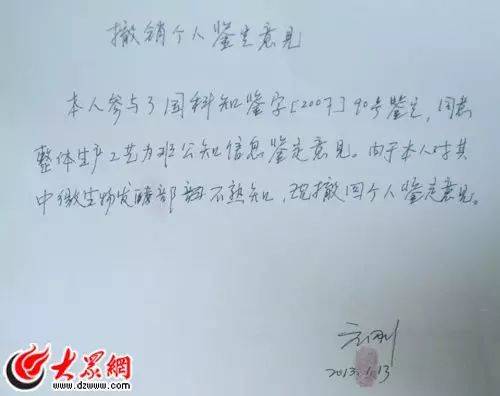 撤销个人鉴定意见
本人参与了国科知鉴字[2007]90号鉴定,同意
整体生产工艺为非公知信息鉴定意见。由于本人对其
中微生物发酵部分不熟知,现撤回个人鉴定意见。
2013.1.13
大众網
www.dzwww.com